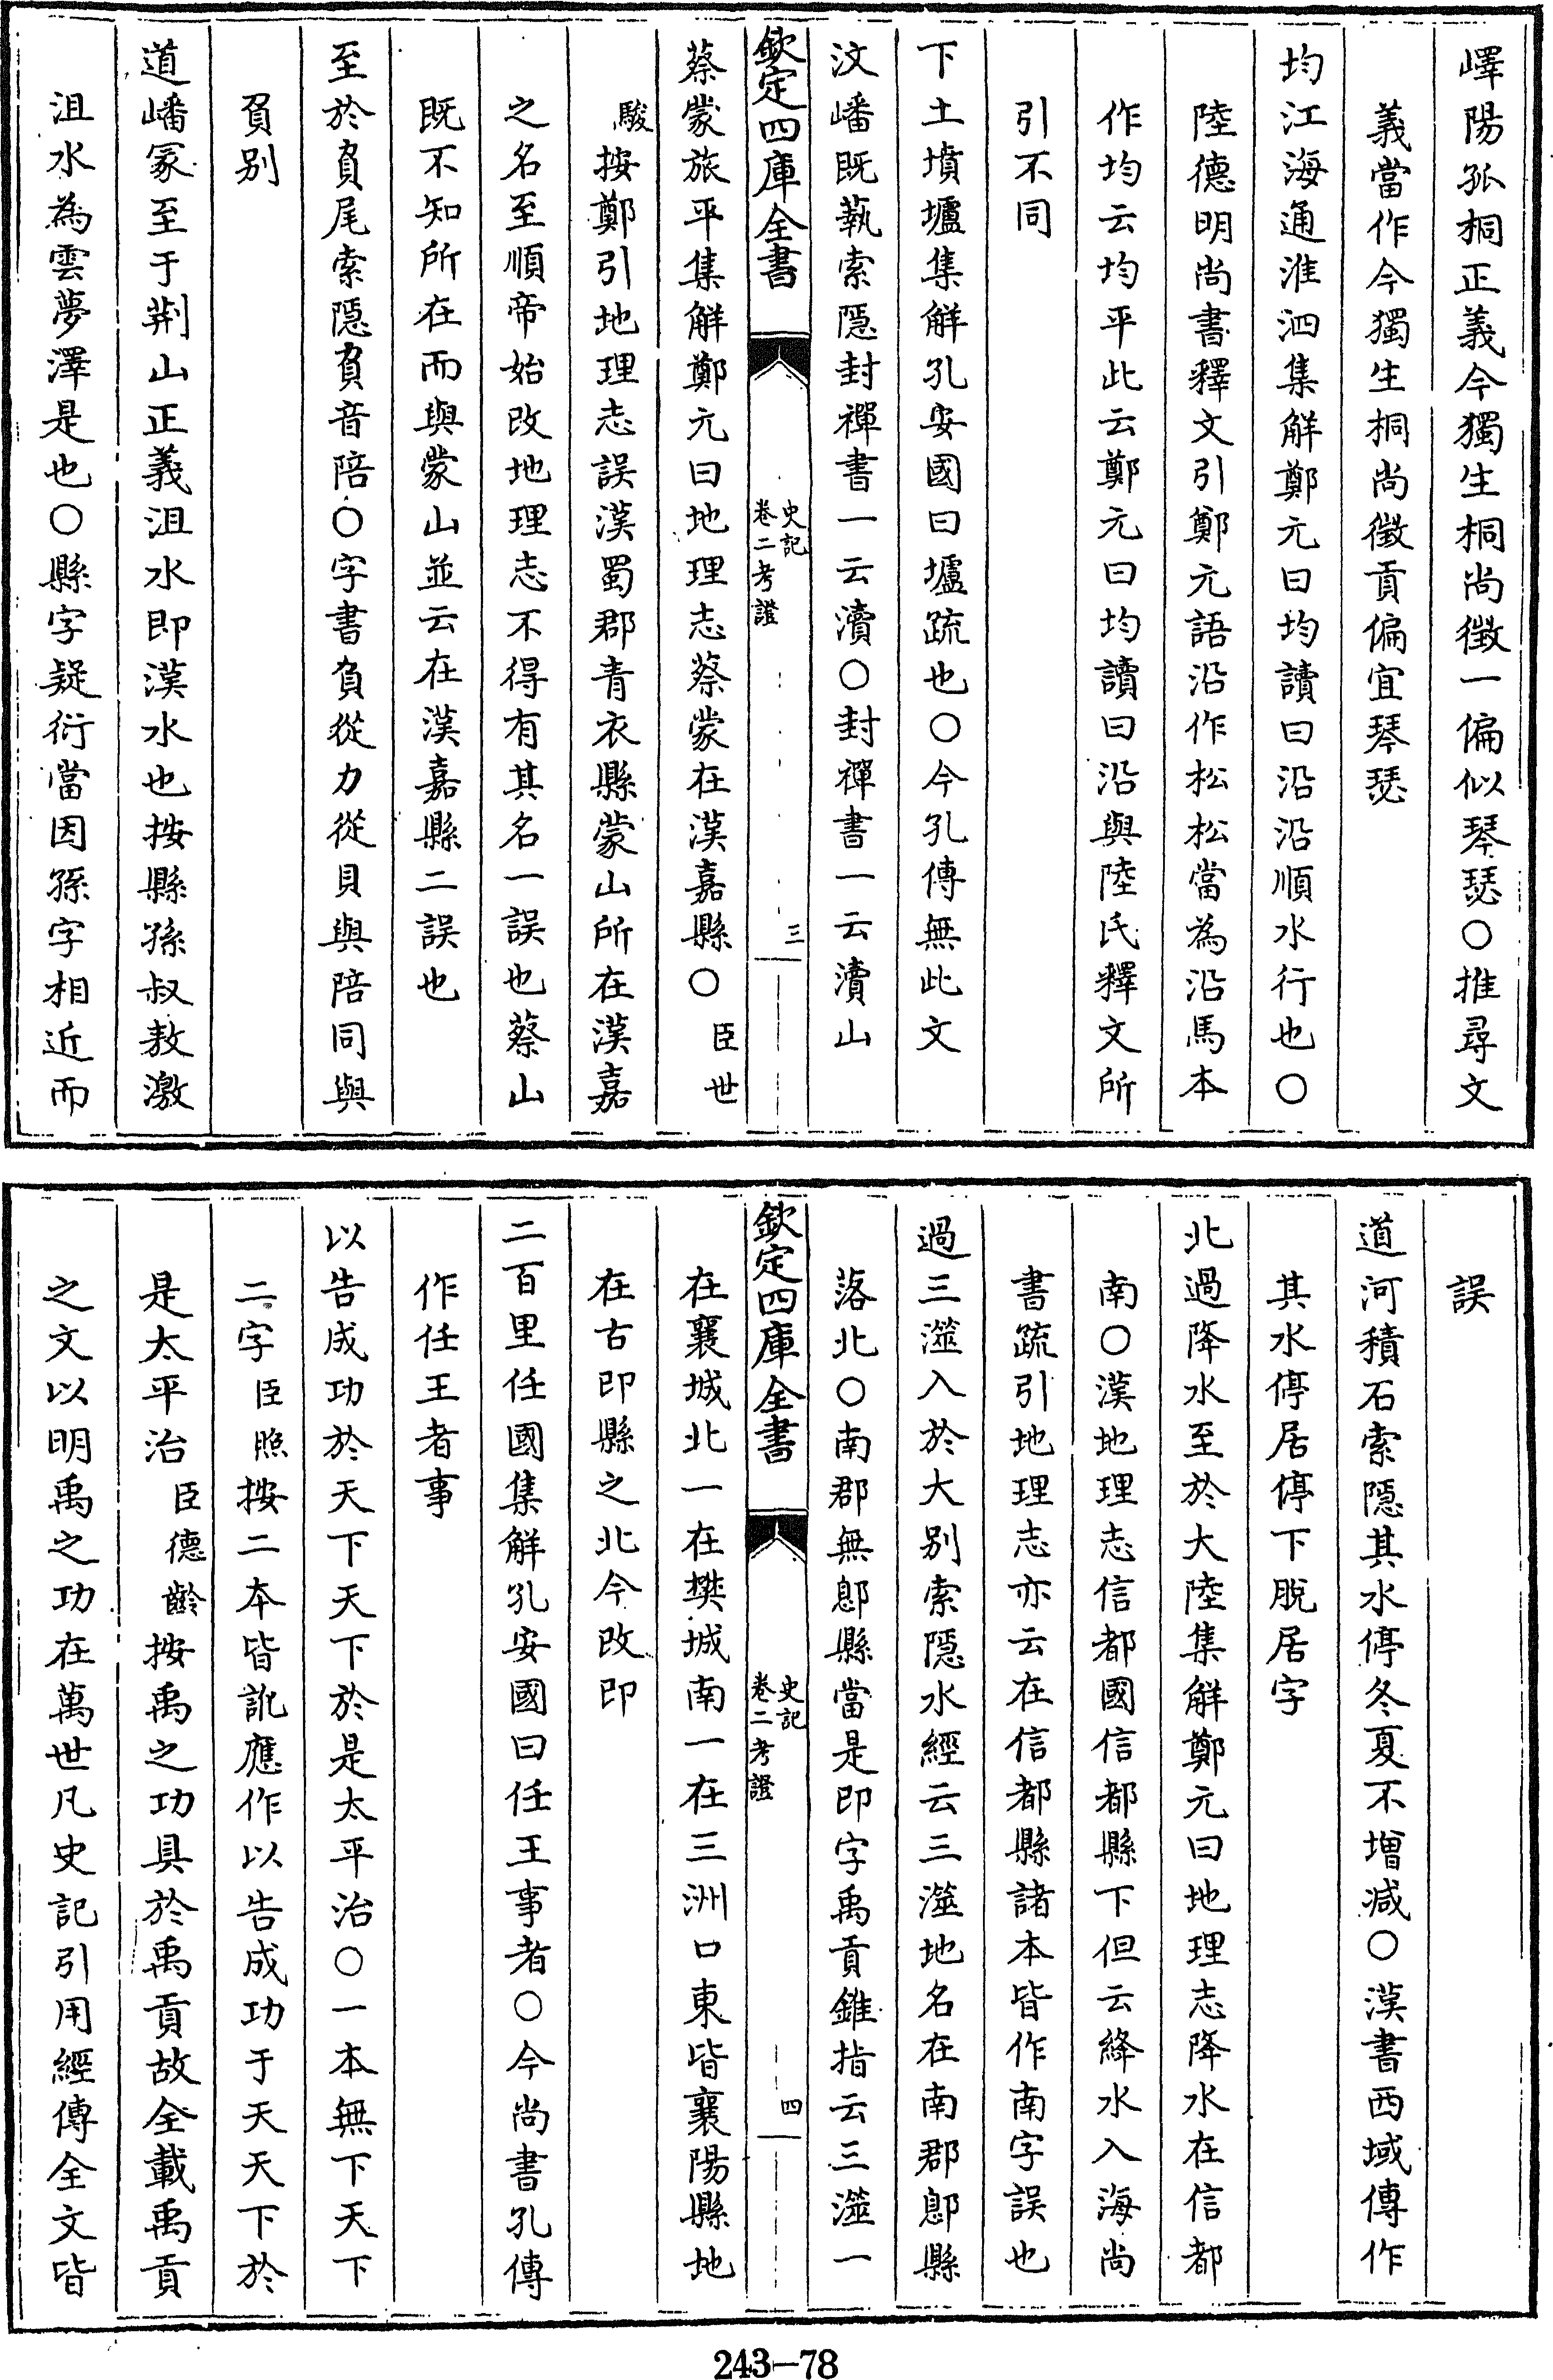 嶧陽孤桐正義今獨生桐尚徵一偏似琴瑟○推尋文
義當作今獨生桐尚徵貢偏宜琴瑟
均江海通淮泗集解鄭元曰均讀曰沿沿順水行也○
陸德明尚書釋文引鄭元語沿作松松當為沿馬本
作均云均平此云鄭元曰均讀曰沿與陸氏釋文所
引不同
下土墳壚集解孔安國曰壚疏也○今孔傳無此文
汶嶓既蓺索隱封禪書一云瀆○封禪書一云瀆山
欽定四庫全書
史記
卷二考證
三
蔡蒙旅平集解鄭元曰地理志蔡蒙在漢嘉縣○臣世
駿按鄭引地理志誤漢蜀郡青衣縣蒙山所在漢嘉
之名至順帝始改地理志不得有其名一誤也蔡山
既不知所在而與蒙山並云在漢嘉縣二誤也
至於負尾索隱負音陪○字書負從力從貝與陪同與
負别
道嶓冢至于荆山正義沮水即漢水也按縣孫叔敖激
沮水為雲夢澤是也○縣字疑衍當因孫字相近而
誤
道河積石索隱其水停冬夏不增減○漢書西域傳作
其水停居停下脫居字
北過降水至於大陸集解鄭元曰地理志降水在信都
南○漢地理志信都國信都縣下但云絳水入海尚
書疏引地理志亦云在信都縣諸本皆作南字誤也
過三澨入於大别索隱水經云三澨地名在南郡郎縣
落北○南郡無郎縣當是即字禹貢錐指云三澨一
欽定四庫全書
史記
卷二考證
四
在襄城北一在樊城南一在三洲口東皆襄陽縣地
在古即縣之北今改即
二百里任國集解孔安國曰任王事者○今尚書孔傳
作任王者事
以告成功於天下天下於是太平治○一本無下天下
二字臣照按二本皆訛應作以告成功于天天下於
是太平治臣德齡按禹之功具於禹貢故全載禹貢
之文以明禹之功在萬世凡史記引用經傳全文皆
243—78